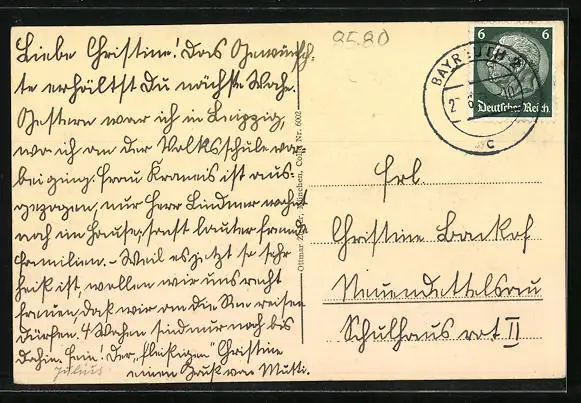 85.80
Liebe Christine! Das Gewünsch-
te erhältst Du nächste Woche.
Gestern war ich in Leipzig,
wo ich an der Volksschule vor-
beiging. Frau Kramis ist aus-
gezogen, nur Herr Lindner wohnt
noch im Hause, sonst lauter fremde
Familien. - Weil es jetzt so sehr
heiß ist, wollen wir uns recht
freuen, daß wir an die See reisen
dürfen. 4 Wochen sind nur noch bis
dahin. Fein! Der "fleißigen" Christine
einen Gruß von Mutti.
Julius
Ottmar Zieher, München, Nr. 6002
BAYREUTH 2
c
6 6
Deutsches Reich
Frl.
Christine Backof
Neuendettelsau
Schulhaus rot II